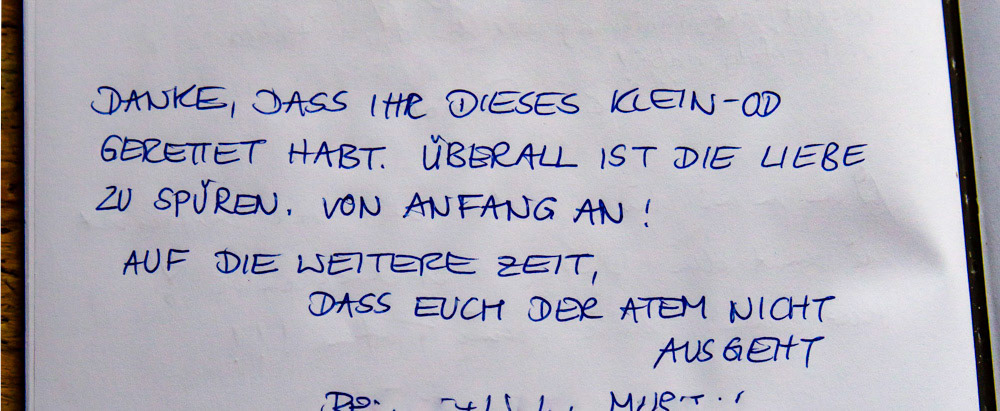 DANKE, DASS IHR DIESES KLEIN-OD
GERETTET HABT. ÜBERALL IST DIE LIEBE
ZU SPÜREN. VON ANFANG AN!
AUF DIE WEITERE ZEIT,
DASS EUCH DER ATEM NICHT
AUSGEHT